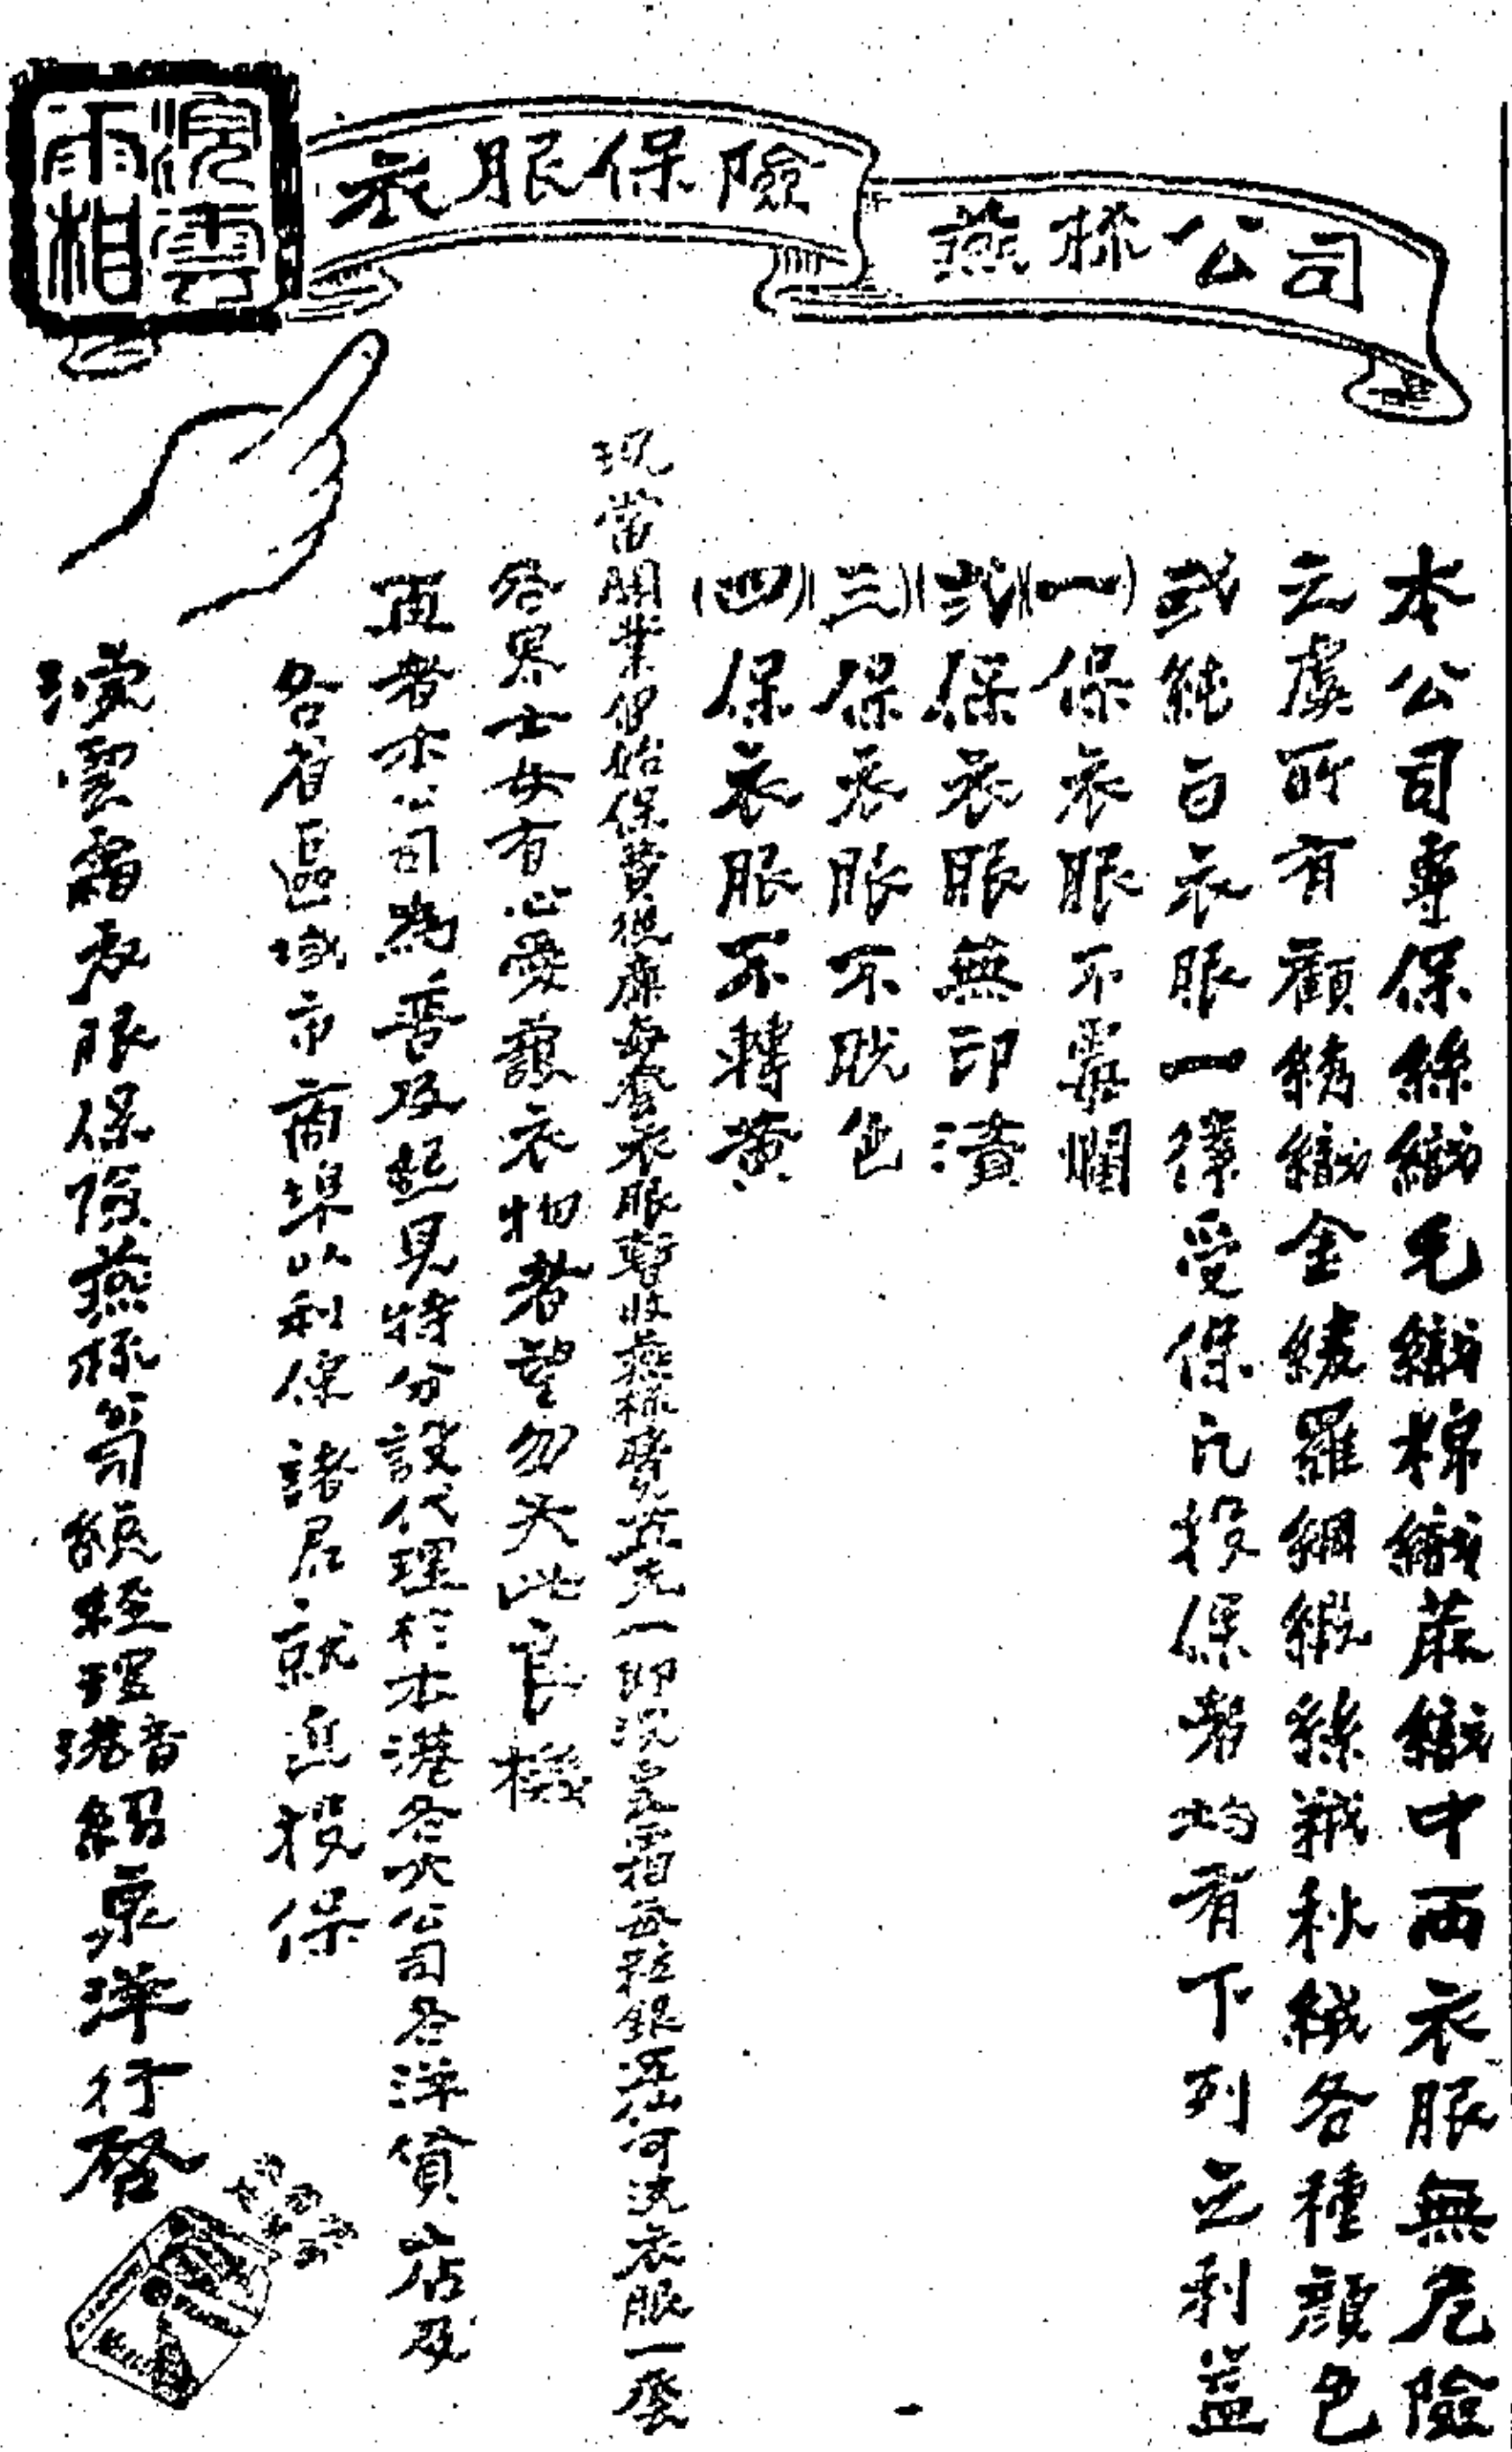 浣雲
雨相
衣服保險
燕梳公司
本公司專保絲織毛織棉織蔴織中西衣服無危險
之虞所有顧綉織金綾羅綢緞絲羢秋絨各種顏色
或純白衣服一律受保凡投保者均有下列之利益
(一)保衣服不霉爛
(弍)保衣服無印漬
(三)保衣服不脫色
(四)保衣服不轉黃
現當開業伊始保費從廉每套衣服暫收燕梳費五先一即浣雲霜每粒銀五仙可洗衣服一套
各界士女有心愛護衣物者望勿失此良機
再者本公司為普及起見特分設代理於本港各大公司各洋貨店及
各省區域市商埠以利保諸君就近投保
浣雲霜衣服保險燕梳公司總經理香港紹泉洋行啓